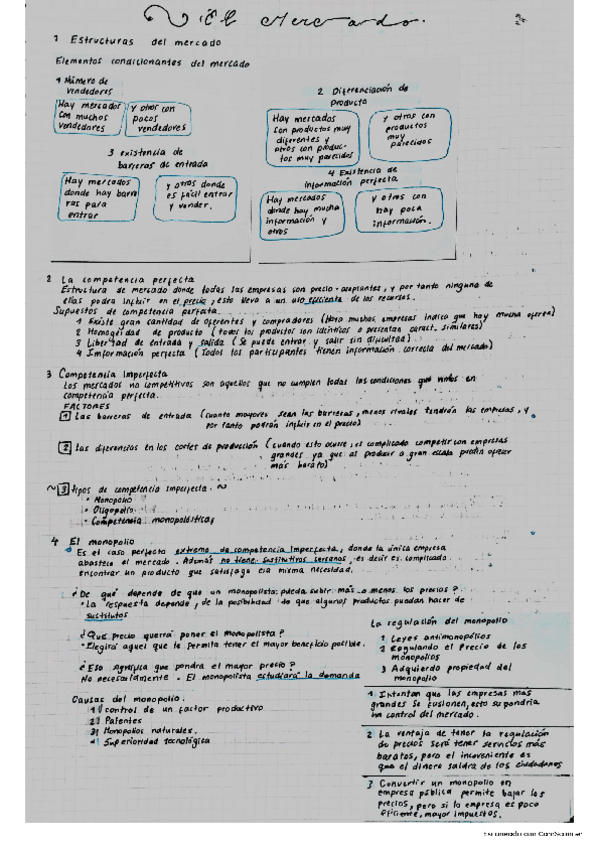 El Mercado.
1 Estructuras del mercado
Elementos condicionantes del mercado
1 Número de
vendedores
Hay mercados
con muchos
vendedores
y otros con
pocos
vendedores
2 Diferenciación de
producto
Hay mercados
con productos muy
diferentes y
otros con produc-
tos muy parecidos
y otros con
productos
muy
parecidos
3 existencia de
barreras de entrada
Hay mercados
donde hay barre
ras para
entrar
y otros donde
es fácil entrar
y vender.
4 Existencia de
información perfecta
Hay mercados
donde hay mucha
información y
otros
y otros con
hay poca
información.
2 La competencia perfecta
Estructura de mercado donde todas las empresas son precio-aceptantes, y por tanto ninguna de
ellas podra influir en el precio, esto lleva a un uso eficiente de los recursos.
Supuestos de competencia perfecta.
1 Existe gran cantidad de oferentes y compradores (Haya muchas empresas indica que hay mucha oferta)
2 Homogeidad de producto (todos los productos son identicos o presentan caract. similares)
3 Libertad de entrada y salida (Se puede entrar y salir sin dificultad)
4 Imformación perfecta (Todos los participantes tienen información correcta del mercado)
3 Competencia Imperfecta
Los mercados no competitivos son aquellos que no cumplen todas las condiciones que vimos en
competencia perfecta.
FACTORES
1 Las barreras de entrada (cuanto mayores sean las barreras, menos rivales tendrán las empresas, y
por tanto podrán influir en el precio)
2 Las diferencias en los costes de producción (cuando esto ocurre, es complicado competir con empresas
grandes ya que al producir a gran escala pueden ofrecer
más barato)
~ 3 tipos de competencia imperfecta. ~
• Monopolio
• Oligopolio
• Competencia monopolística
4 El monopolio
Es el caso perfecto extremo de competencia Imperfecta, donde la única empresa
abastece el mercado. Además no tiene sustitutivos cercanos, es decir es complicado
encontrar un producto que satisfaga esa misma necesidad.
¿De qué depende de que un monopolista pueda subir más o menos los precios?
• La respuesta depende, de la posibilidad de que algunos productos puedan hacer de
sustitutos
¿Qué precio querrá poner el monopolista?
• Elegirá aquel que le permita tener el mayor beneficio posible.
¿Eso significa que pondra el mayor precio?
No necesariamente. El monopolista estudiará la demanda
Causas del monopolio.
1) control de un factor productivo
2) Patentes
3) Monopolios naturales.
4) Superioridad tecnológica
La regulación del monopolio
1 Leyes antimonopólios
2 Regulando el Precio de los
monopolios
3 Adquierdo propiedad del
monopolio
1. Intentan que las empresas más
grandes se fusionen, esto supondría
un control del mercado.
2 La ventaja de tener la regulación
de precios será tener servicios más
baratos, pero el inconveniente es
que el dinero saldra de los ciudadanos
3 Convertir un monopolio en
empresa pública permite bajar los
precios, pero si la empresa es poco
eficiente, mayor impuestos.
Escaneado con CamScanner